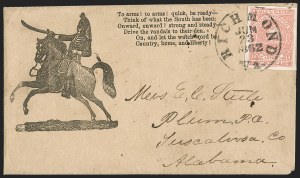 To arms! to arms! quick, be ready—
Think of what the South has been;
Onward, onward! strong and steady—
Drive the vandals to their den.
On, and let the watchword be
Country, home, and liberty!
RICHMOND
JUN
23
1862
VA.
E. C. Steele
Plum P.O.
Tuscaloosa Co
Alabama